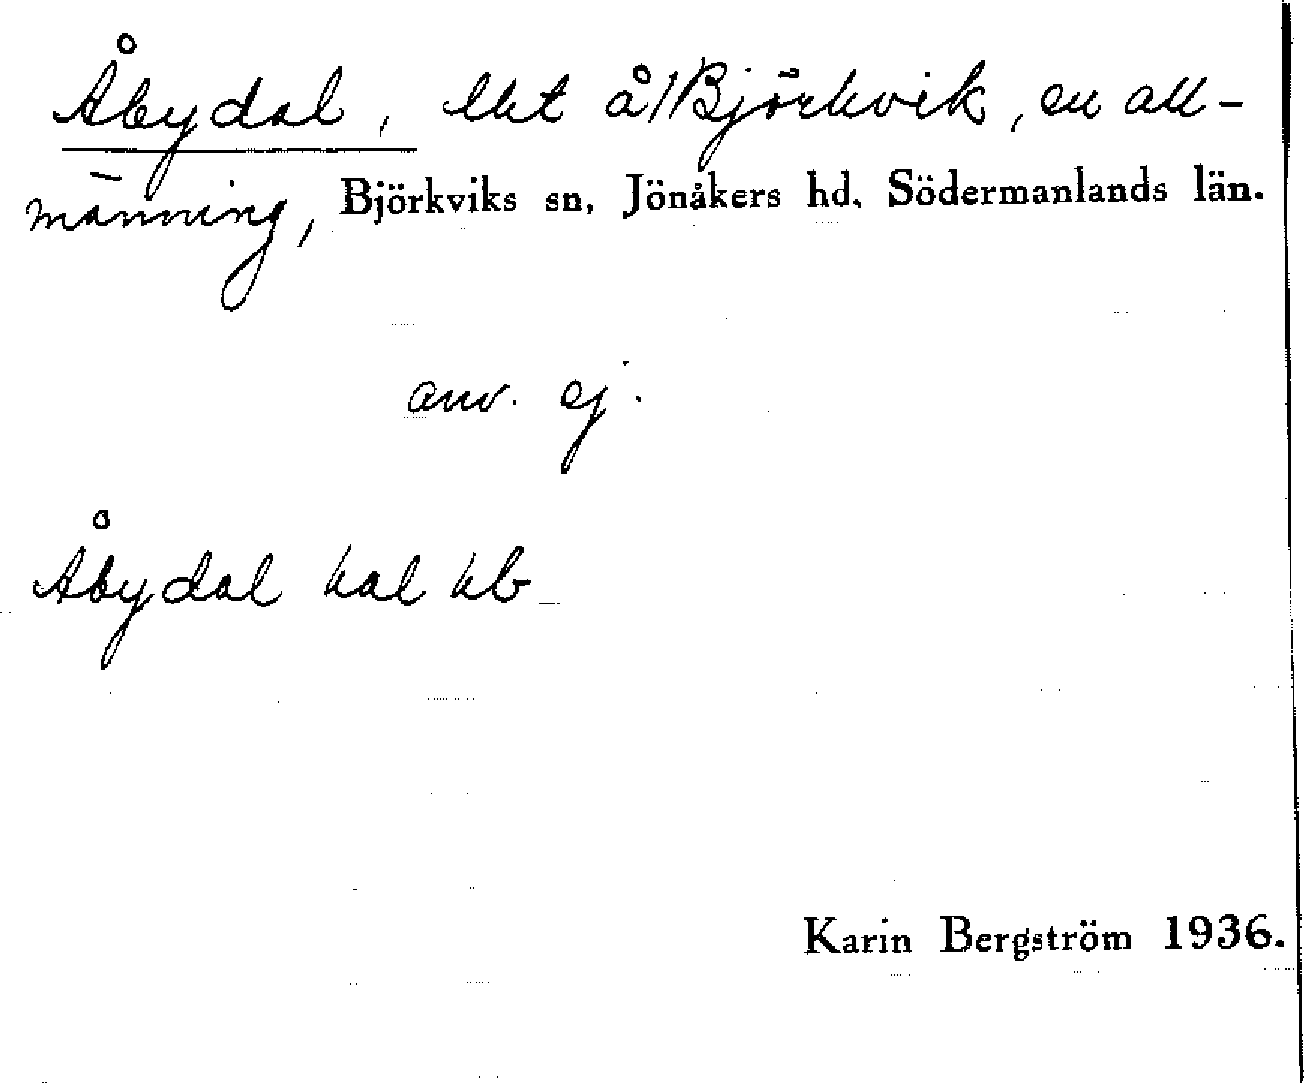 Åbydal, lht å 1/1 Björkvik, en all-
männing, Björkviks sn, Jönåkers hd, Södermanlands län.
anv. ej.
Åbydal hal kb
Karin Bergström 1936.